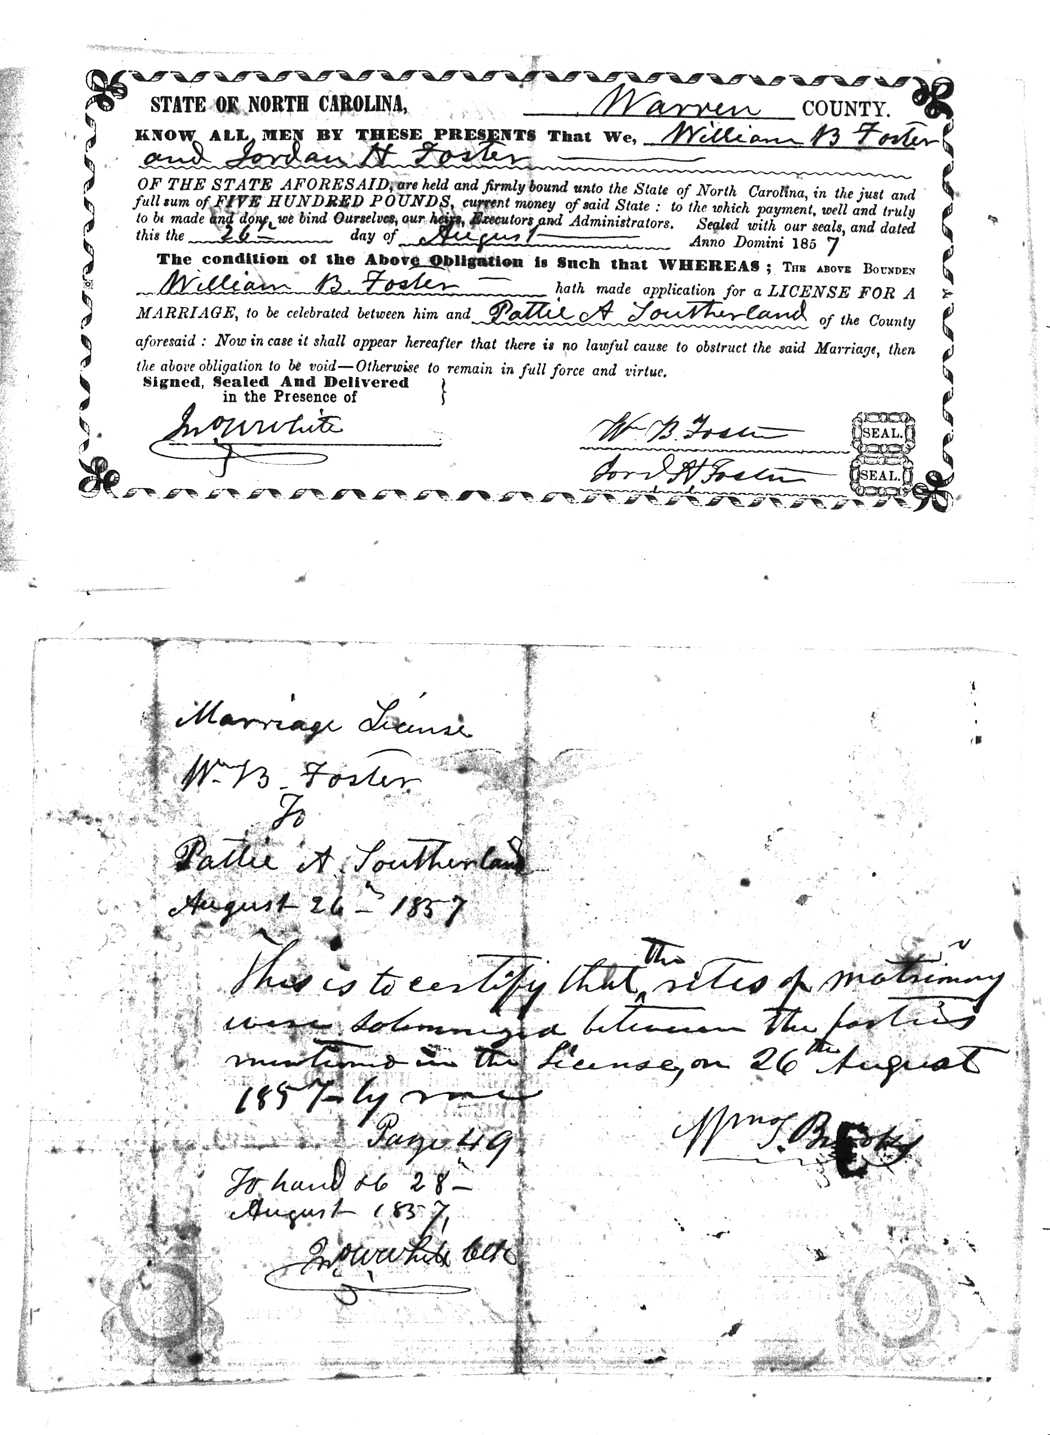 STATE OF NORTH CAROLINA, Warren COUNTY.
KNOW ALL MEN BY THESE PRESENTS That We, William B Foster
and Jordan H Foster
OF THE STATE AFORESAID, are held and firmly bound unto the State of North Carolina, in the just and
full sum of FIVE HUNDRED POUNDS, current money of said State : to the which payment, well and truly
to be made and done, we bind Ourselves, our heirs, Executors and Administrators. Sealed with our seals, and dated
this the 26th day of August Anno Domini 1857
The condition of the Above Obligation is Such that WHEREAS ; THE ABOVE BOUNDEN
William B. Foster hath made application for a LICENSE FOR A
MARRIAGE, to be celebrated between him and Pattie A Southerland of the County
aforesaid : Now in case it shall appear hereafter that there is no lawful cause to obstruct the said Marriage, then
the above obligation to be void—Otherwise to remain in full force and virtue.
Signed, Sealed And Delivered }
in the Presence of
Jno W White
Wm B. Foster SEAL.
Jord H Foster SEAL.
Marriage License
Wm B. Foster
To
Pattie A. Southerland
August 26th 1857
This is to certify that the rites of matrimony
were solemnized between the parties
mentioned in the License, on 26th August
1857 by me
Page 49
To hand 28
August 1857,
Jno W White Clk